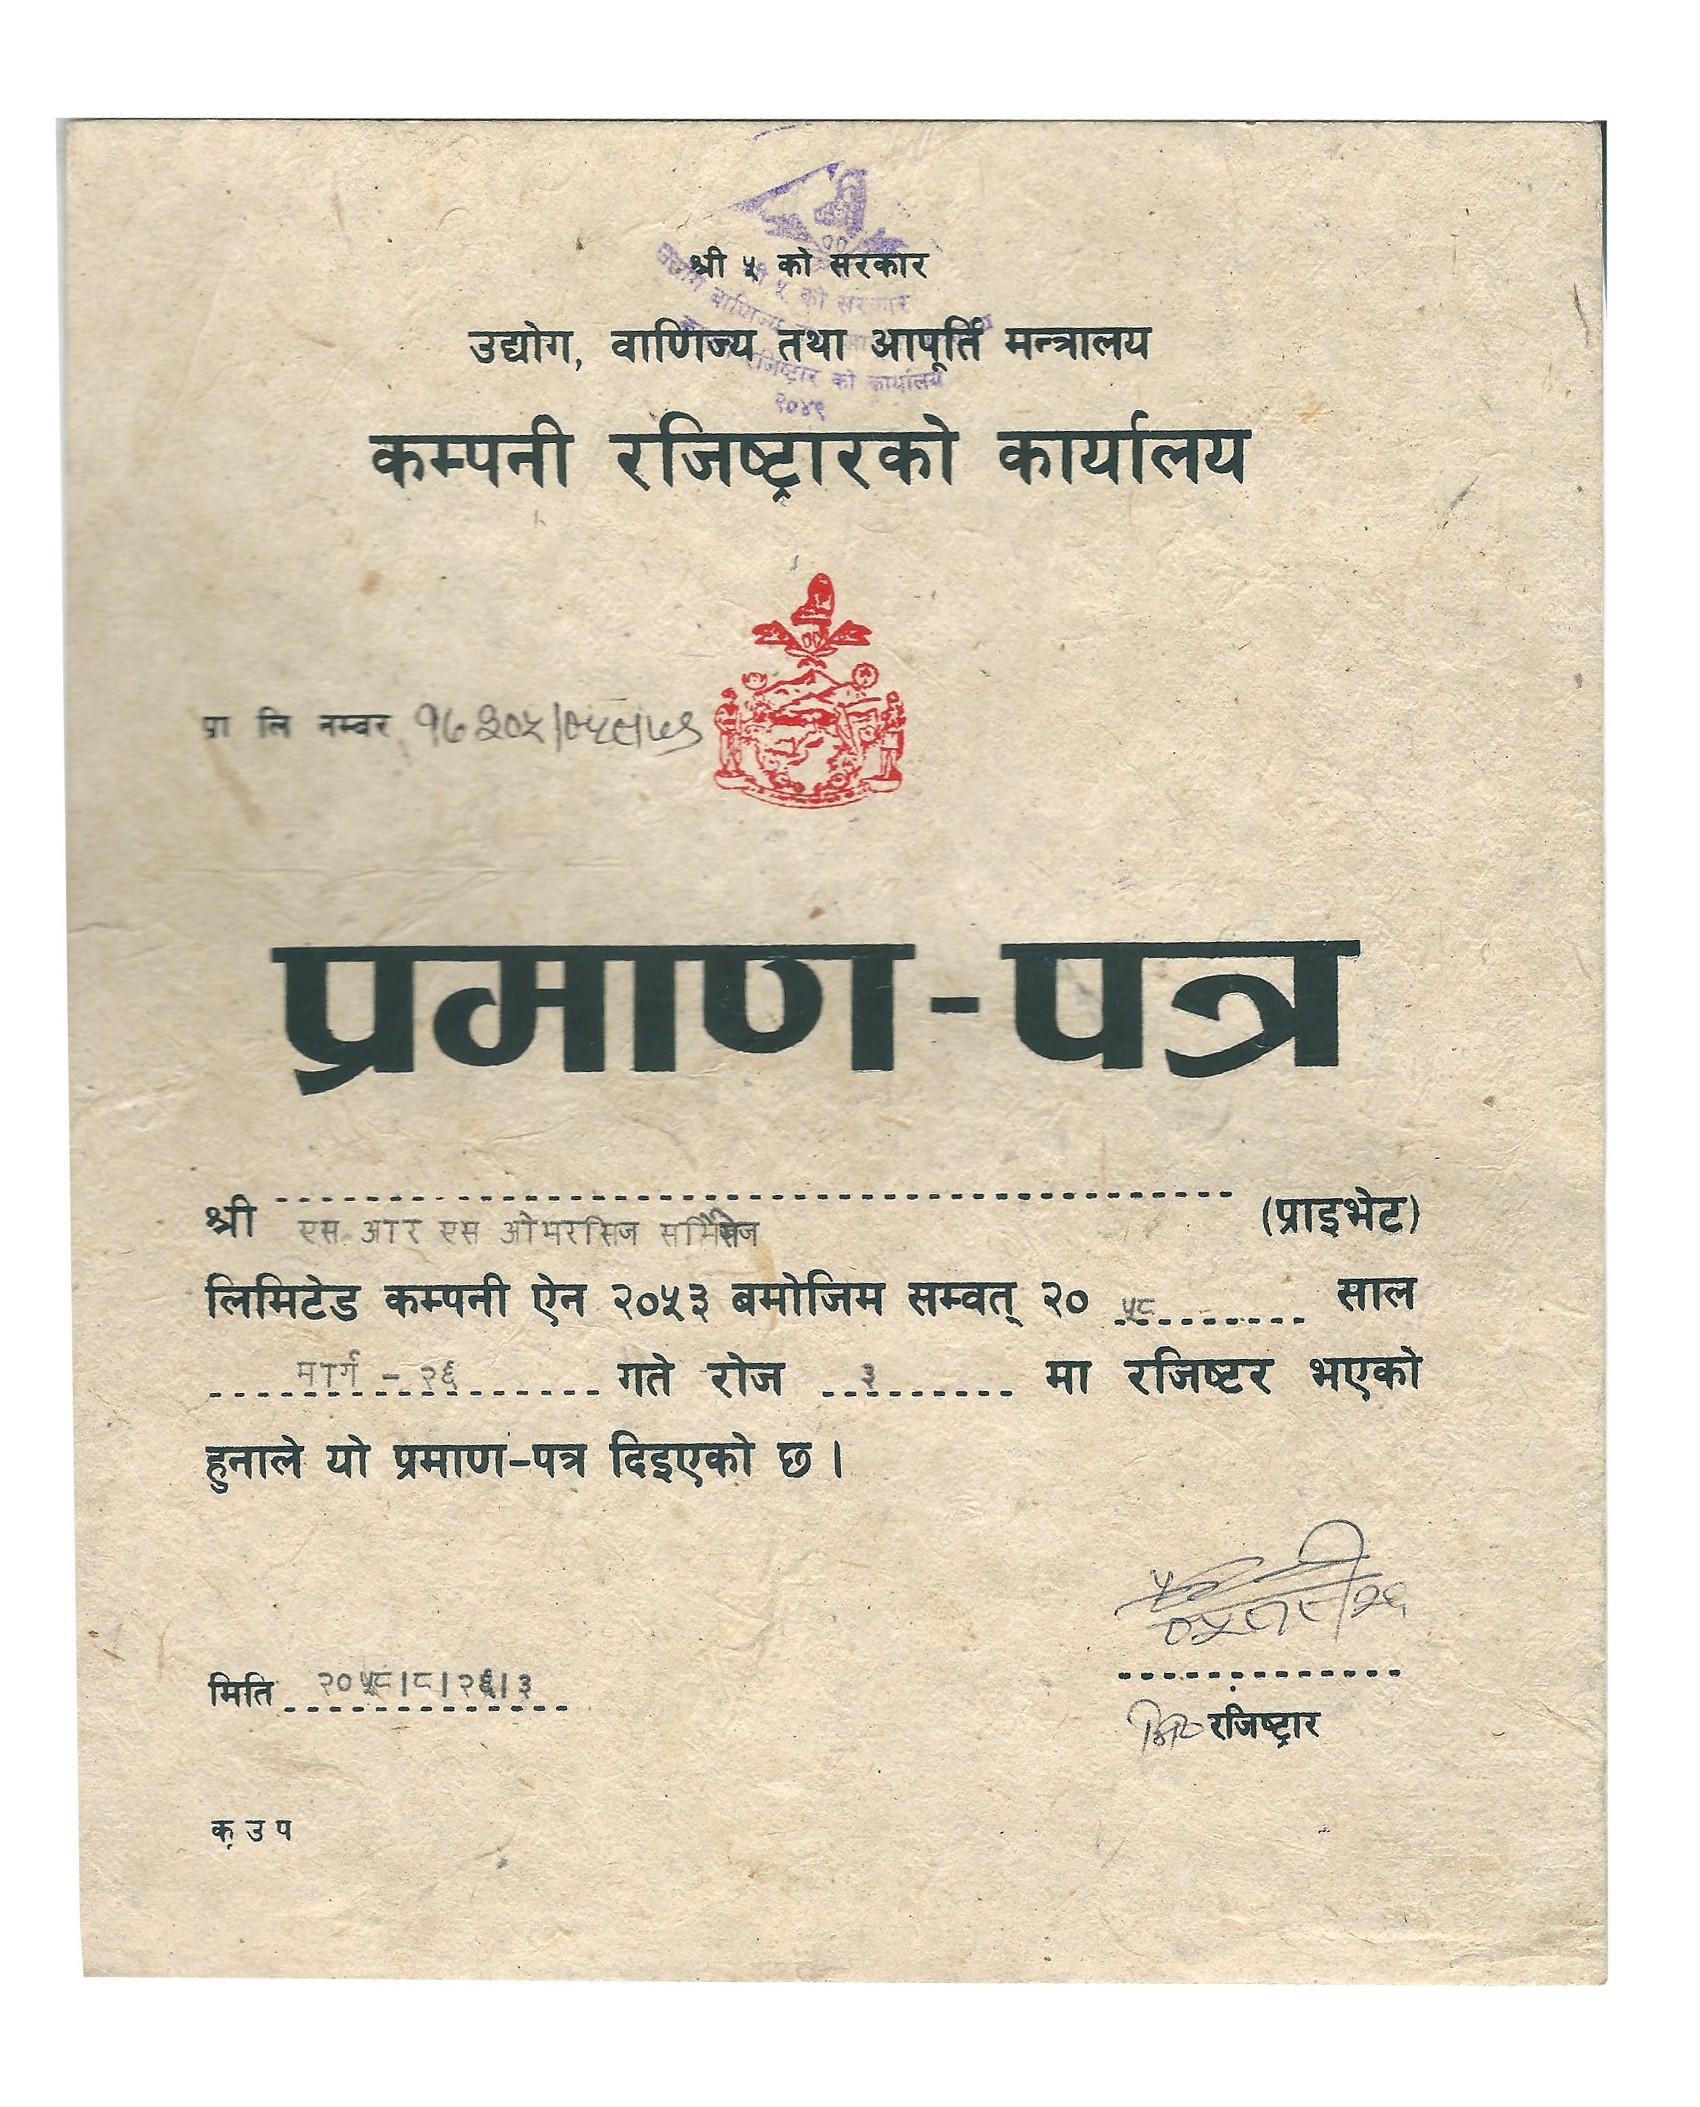 श्री ५ को सरकार
श्री ५ को सरकार
उद्योग, वाणिज्य तथा आपूर्ति मन्त्रालय
उद्योग वाणिज्य
रजिष्ट्रार को कार्यालय
२०४९
कम्पनी रजिष्ट्रारको कार्यालय
प्रा लि नम्बर १७३०५/०५८/५९
प्रमाण-पत्र
श्री एस आर एस ओभरसिज सर्भिसेज (प्राइभेट)
लिमिटेड कम्पनी ऐन २०५३ बमोजिम सम्वत् २० ५८ साल
मार्ग - २६ गते रोज ३ मा रजिष्टर भएको
हुनाले यो प्रमाण-पत्र दिइएको छ ।
मिति २०५८।८।२६।३
रजिष्ट्रार
क उ प